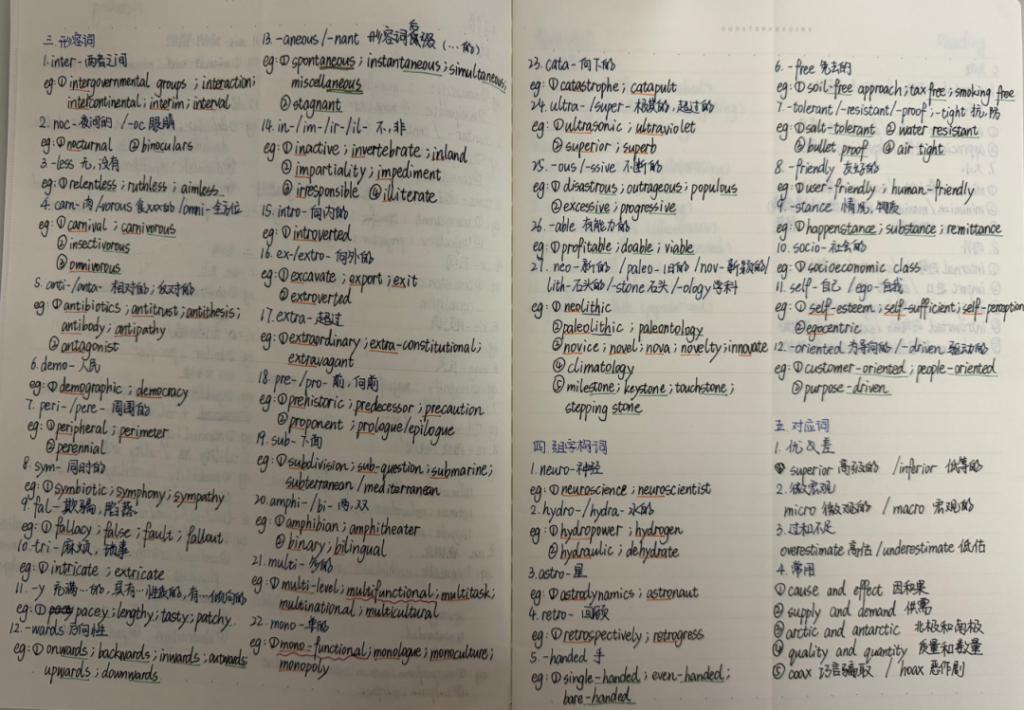 三. 形容词
1. inter- 两者之间
eg: ① intergovernmental groups ; interaction;
intercontinental ; interim ; interval
2. noc- 夜间的 / -oc 眼睛
eg: ① nocturnal ② binoculars
3. -less 无, 没有
eg: ① relentless ; ruthless ; aimless
4. carn- 肉 / vorous 食xxx的 / omni- 全方位
eg: ① carnival ; carnivorous
② insectivorous
③ omnivorous
5. anti-/anta- 相对的; 反对的
eg: ① antibiotics ; antitrust ; antithesis;
antibody ; antipathy
② antagonist
6. demo- 人民
eg: ① demographic ; democracy
7. peri-/pere- 周围的
eg: ① peripheral ; perimeter
② perennial
8. sym- 同时的
eg: ① symbiotic ; symphony ; sympathy
9. fal- 欺骗,
eg: ① fallacy ; false ; fault ; fallout
10. tri- 麻烦, 琐事
eg: ① intricate ; extricate
11. -y 充满…的, 具有…性质的, 有…倾向的
eg: ① pacey ; lengthy ; tasty ; patchy
12. -wards 方向性
eg: ① onwards ; backwards ; inwards ; outwards
upwards ; downwards
13. -aneous/-nant 形容词后缀 (…的)
eg: ① spontaneous ; instantaneous ; simultaneous;
miscellaneous
② stagnant
14. in-/im-/ir-/il- 不, 非
eg: ① inactive ; invertebrate ; inland
② impartiality ; impediment
③ irresponsible ④ illiterate
15. intro- 向内的
eg: ① introverted
16. ex-/extro- 向外的
eg: ① excavate ; export ; exit
② extroverted
17. extra- 超过
eg: ① extraordinary ; extra-constitutional;
extravagant
18. pre-/pro- 前, 向前
eg: ① prehistoric ; predecessor ; precaution
② proponent ; prologue/epilogue
19. sub- 下面
eg: ① subdivision ; sub-question ; submarine;
subterranean / mediterranean
20. amphi-/bi- 两, 双
eg: ① amphibian ; amphitheater
② binary ; bilingual
21. multi- 多的
eg: ① multi-level ; multifunctional ; multitask;
multinational ; multicultural
22. mono- 单的
eg: ① mono-functional ; monologue ; monoculture;
monopoly
23. cata- 向下的
eg: ① catastrophe ; catapult
24. ultra-/super- 极其的, 超过的
eg: ① ultrasonic ; ultraviolet
② superior ; superb
25. -ous/-ssive 不断的
eg: ① disastrous ; outrageous ; populous
② excessive ; progressive
26. -able 有能力的
eg: ① profitable ; doable ; viable
27. neo- 新的 / paleo- 旧的 / nov- 新颖的 /
lith- 石头的 / -stone 石头 / -ology 学科
eg: ① neolithic
② paleolithic ; paleontology
③ novice ; novel ; nova ; novelty ; innovate
④ climatology
⑤ milestone ; keystone ; touchstone ;
stepping stone
四. 组合构词
1. neuro- 神经
eg: ① neuroscience ; neuroscientist
2. hydro-/hydra- 水的
eg: ① hydropower ; hydrogen
② hydraulic ; dehydrate
3. astro- 星
eg: ① astrodynamics ; astronaut
4. retro- 回顾
eg: ① retrospectively ; retrogress
5. -handed 手
eg: ① single-handed ; even-handed ;
bare-handed
6. -free 免去的
eg: ① soil-free approach ; tax free ; smoking free
7. -tolerant/-resistant/-proof ; -tight 抗, 防
eg: ① salt-tolerant ② water resistant
③ bullet proof ④ air tight
8. -friendly 友好的
eg: ① user-friendly ; human-friendly
9. -stance 情况, 物质
eg: ① happenstance ; substance ; remittance
10. socio- 社会的
eg: ① socioeconomic class
11. self- 自己 / ego- 自我
eg: ① self-esteem ; self-sufficient ; self-perception
② egocentric
12. -oriented 为导向的 / -driven 驱动的
eg: ① customer-oriented ; people-oriented
② purpose-driven
五. 对应词
1. 优&差
① superior 高级的 / inferior 低等的
2. 微宏观
micro 微观的 / macro 宏观的
3. 过和不足
overestimate 高估 / underestimate 低估
4. 常用
① cause and effect 因和果
② supply and demand 供需
③ arctic and antarctic 北极和南极
④ quality and quantity 质量和数量
⑤ coax 巧言骗取 / hoax 恶作剧